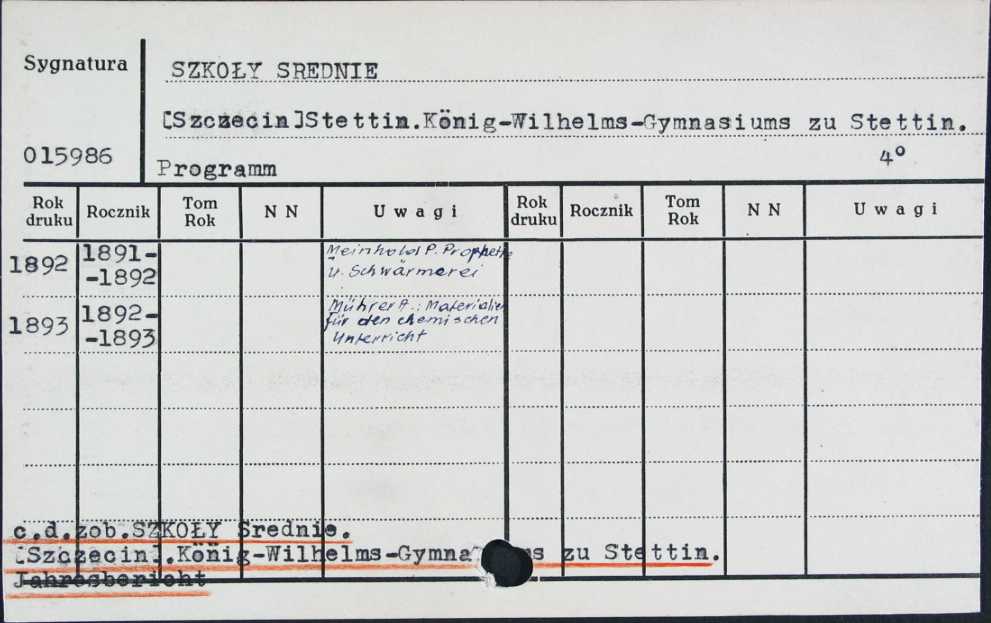 Sygnatura
SZKOŁY SREDNIE
[Szczecin]Stettin.König-Wilhelms-Gymnasiums zu Stettin.
015986
4°
Programm
Rok druku Rocznik Tom Rok N N Uwagi Rok druku Rocznik Tom Rok N N Uwagi
1892 1891-
-1892
Meinhold P. Prophetie
u. Schwärmerei
1893 1892-
-1893
Mührer A.: Materialien
für den chemischen
Unterricht
c.d.zob.SZKOŁY Srednie.
[Szczecin].König-Wilhelms-Gymna ms zu Stettin.
Jahresbericht